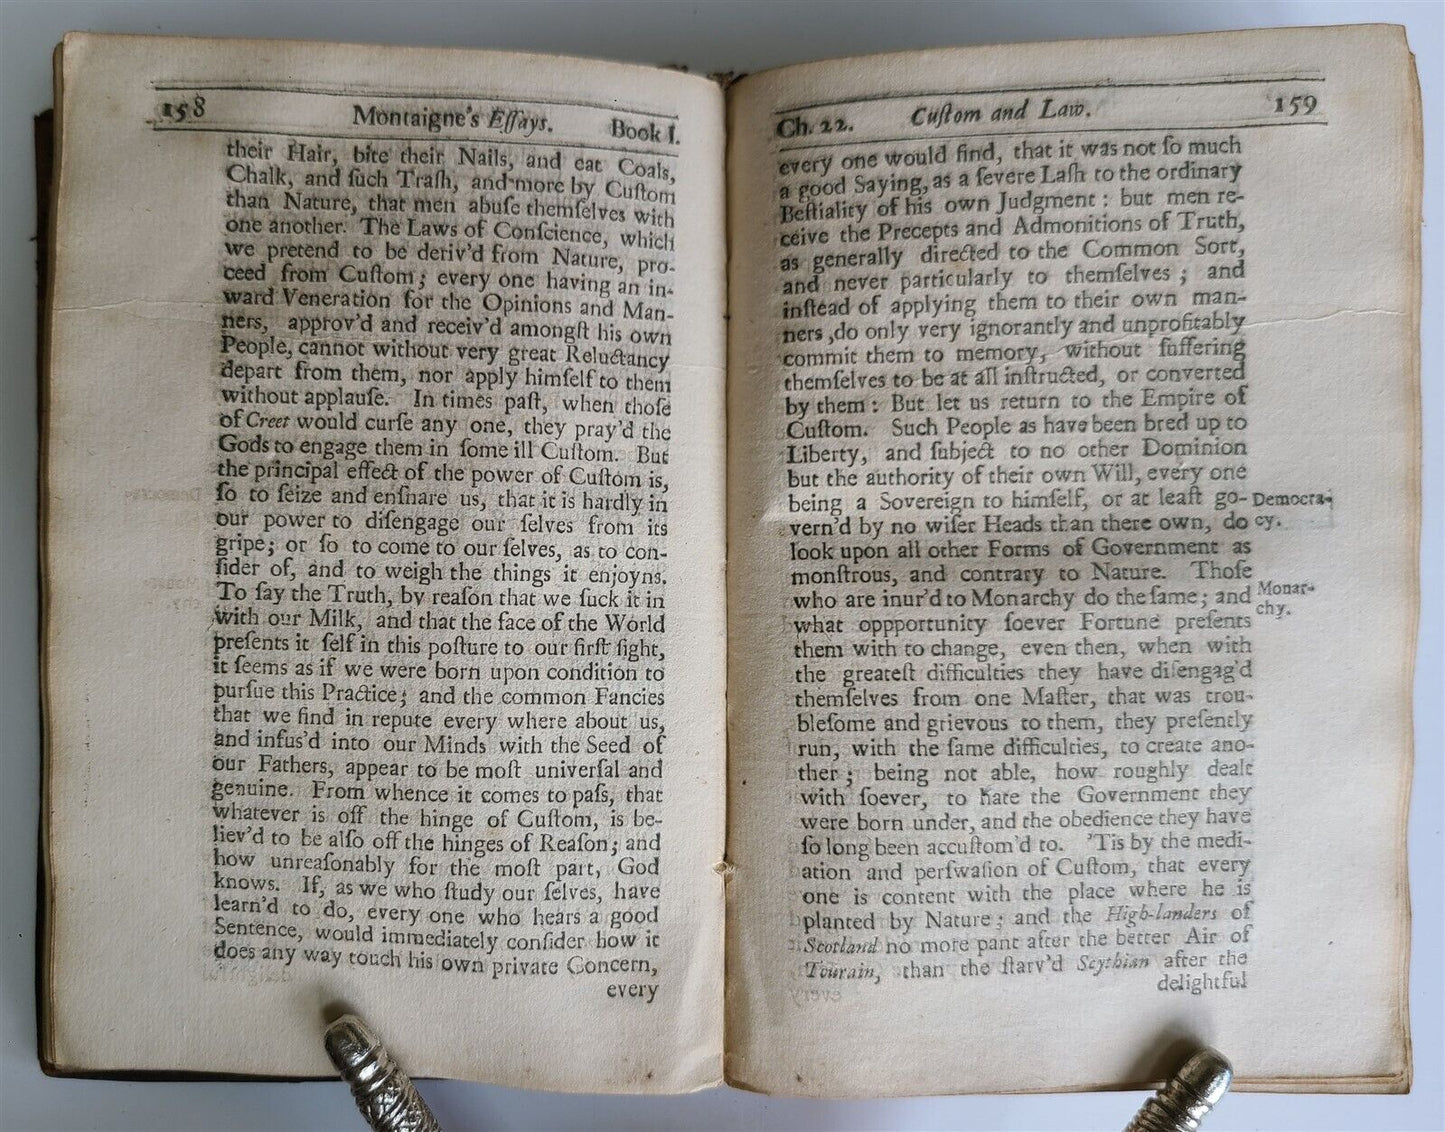 158 Montaigne's Eſſays. Book I.
their Hair, bite their Nails, and eat Coals,
Chalk, and ſuch Traſh, and more by Cuſtom
than Nature, that men abuſe themſelves with
one another. The Laws of Conſcience, which
we pretend to be deriv'd from Nature, pro-
ceed from Cuſtom; every one having an in-
ward Veneration for the Opinions and Man-
ners, approv'd and receiv'd amongſt his own
People, cannot without very great Reluctancy
depart from them, nor apply himſelf to them
without applauſe. In times paſt, when thoſe
of Creet would curſe any one, they pray'd the
Gods to engage them in ſome ill Cuſtom. But
the principal effect of the power of Cuſtom is,
ſo to ſeize and enſnare us, that it is hardly in
our power to diſengage our ſelves from its
gripe; or ſo to come to our ſelves, as to con-
ſider of, and to weigh the things it enjoyns.
To ſay the Truth, by reaſon that we ſuck it in
with our Milk, and that the face of the World
preſents it ſelf in this poſture to our firſt ſight,
it ſeems as if we were born upon condition to
purſue this Practice; and the common Fancies
that we find in repute every where about us,
and infus'd into our Minds with the Seed of
our Fathers, appear to be moſt univerſal and
genuine. From whence it comes to paſs, that
whatever is off the hinge of Cuſtom, is be-
liev'd to be alſo off the hinges of Reaſon; and
how unreaſonably for the moſt part, God
knows. If, as we who ſtudy our ſelves, have
learn'd to do, every one who hears a good
Sentence, would immediately conſider how it
does any way touch his own private Concern,
every
Ch. 22. Cuſtom and Law. 159
every one would find, that it was not ſo much
a good Saying, as a ſevere Laſh to the ordinary
Beſtiality of his own Judgment: but men re-
ceive the Precepts and Admonitions of Truth,
as generally directed to the Common Sort,
and never particularly to themſelves; and
inſtead of applying them to their own man-
ners, do only very ignorantly and unprofitably
commit them to memory, without ſuffering
themſelves to be at all inſtructed, or converted
by them: But let us return to the Empire of
Cuſtom. Such People as have been bred up to
Liberty, and ſubject to no other Dominion
but the authority of their own Will, every one
being a Sovereign to himſelf, or at leaſt go-
vern'd by no wiſer Heads than there own, do
look upon all other Forms of Government as
monſtrous, and contrary to Nature. Thoſe
who are inur'd to Monarchy do the ſame; and
what oppportunity ſoever Fortune preſents
them with to change, even then, when with
the greateſt difficulties they have diſengag'd
themſelves from one Maſter, that was trou-
bleſome and grievous to them, they preſently
run, with the ſame difficulties, to create ano-
ther; being not able, how roughly dealt
with ſoever, to hate the Government they
were born under, and the obedience they have
ſo long been accuſtom'd to. 'Tis by the medi-
ation and perſwaſion of Cuſtom, that every
one is content with the place where he is
planted by Nature; and the High-landers of
Scotland no more pant after the better Air of
Tourain, than the ſtarv'd Scythian after the
delightful
Democra-
cy.
Monar-
chy.